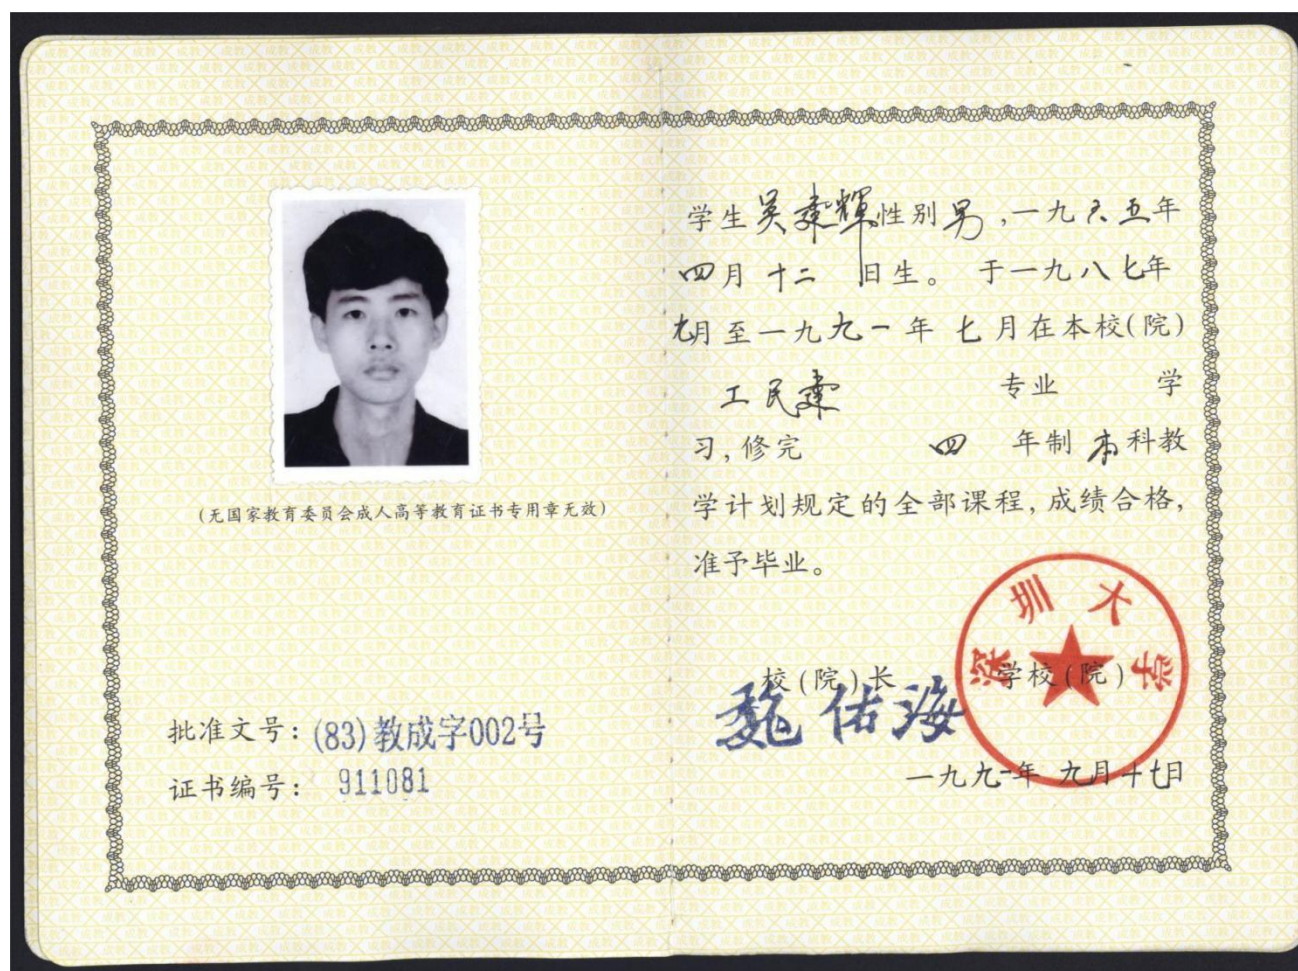 (无国家教育委员会成人高等教育证书专用章无效)
批准文号：(83)教成字002号
证书编号：911081
学生吴建輝性别男，一九六五年
四月十二日生。于一九八七年
九月至一九九一年七月在本校(院)
工民建 专业 学
习，修完 四 年制本科教
学计划规定的全部课程，成绩合格，
准予毕业。
校(院)长 学校(院)
魏佑海
深圳大学
一九九一年九月十七日